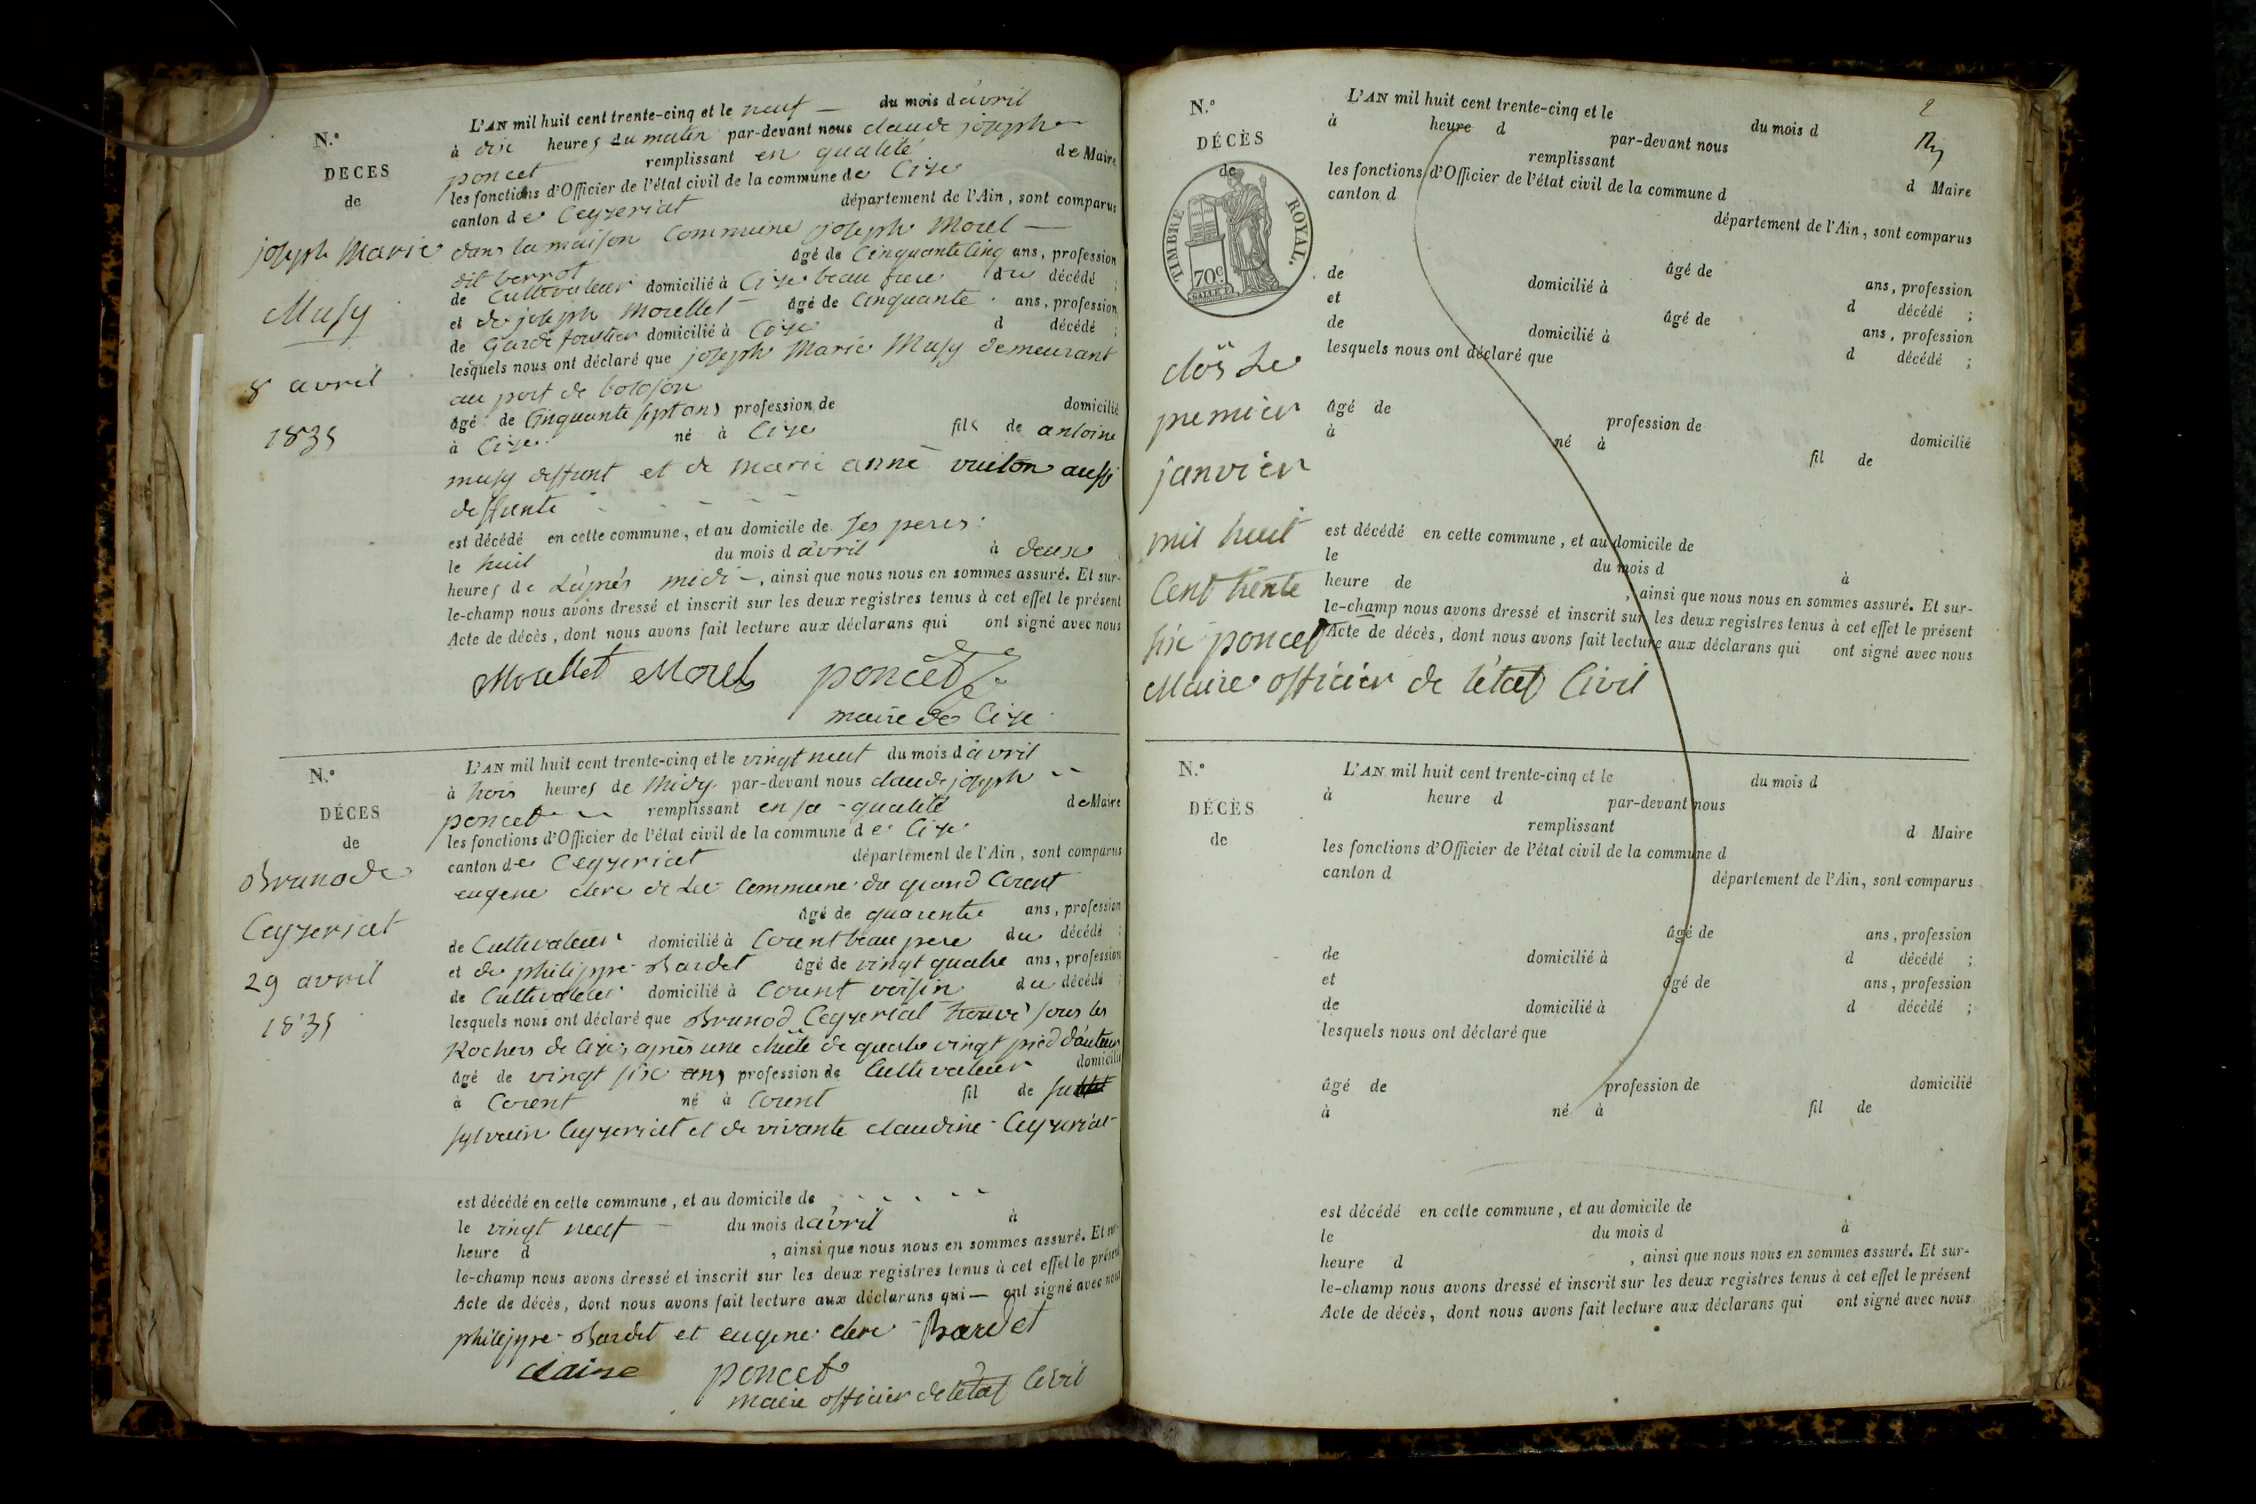 N.º
DECES
de
joseph Marie
Musy
8 avril
1835
L'AN mil huit cent trente-cinq et le neuf du mois d'avril
à dix heures du matin par-devant nous claude joseph
poncet remplissant en qualité de Maire
les fonctions d'Officier de l'état civil de la commune de Cize
canton de Ceyzeriat département de l'Ain, sont comparus
dans la maison Commune joseph Morel
dit berrot âgé de Cinquante Cinq ans, profession
de Cultivateur domicilié à Cize beau frere du décédé ;
et de joseph Morellet âgé de Cinquante ans, profession
de Garde forestier domicilié à Cize d décédé ;
lesquels nous ont déclaré que joseph Marie Musy demeurant
au port de bolozon
âgé de Cinquante sept ans profession de domicilié
à Cize né à Cize fils de antoine
musy deffunt et de marie anne vuiton aussi
deffunte
est décédé en cette commune, et au domicile de ses peres
le huit du mois d'avril à deux
heures de L'après midi, ainsi que nous nous en sommes assuré. Et sur-
le-champ nous avons dressé et inscrit sur les deux registres tenus à cet effet le présent
Acte de décès, dont nous avons fait lecture aux déclarans qui ont signé avec nous
Morellet Morel poncet
maire de Cize
N.º
DÉCES
de
Brunod
Ceyzeriat
29 avril
1835
L'AN mil huit cent trente-cinq et le vingt neuf du mois d'avril
à trois heures de Midy par-devant nous claude joseph
poncet remplissant en sa qualité de Maire
les fonctions d'Officier de l'état civil de la commune de Cize
canton de Ceyzeriat département de l'Ain, sont comparus
eugene clere de La Commune du grand Corent
âgé de quarente ans, profession
de Cultivateur domicilié à Corent beau pere du décédé ;
et de philippe Bardet âgé de vingt quatre ans, profession
de Cultivateur domicilié à Corent voisin du décédé ;
lesquels nous ont déclaré que Brunod Ceyzeriat trouvé sous les
Rochers de Cize, après une chute de quatre vingt pied d'auteur
âgé de vingt six ans profession de Cultivateur domicilié
à Corent né à Corent fil de
sylvain Ceyzeriat et de vivante claudine Ceyzeriat
est décédé en cette commune, et au domicile de
le vingt neuf du mois d'avril à
heure d , ainsi que nous nous en sommes assuré. Et sur-
le-champ nous avons dressé et inscrit sur les deux registres tenus à cet effet le présent
Acte de décès, dont nous avons fait lecture aux déclarans qui ont signé avec nous
philippe Bardet et eugene clere Bardet
claire poncet
maire officier de l'état Civil
2
N.º
DÉCÈS
de
TIMBRE ROYAL.
70c
clôs Le
premier
janvier
mil huit
Cent trente
six poncet
Maire officier de l'état Civil
L'AN mil huit cent trente-cinq et le du mois d
à heure d par-devant nous
remplissant d Maire
les fonctions d'Officier de l'état civil de la commune d
canton d département de l'Ain, sont comparus
âgé de ans, profession
de domicilié à d décédé ;
et âgé de ans, profession
de domicilié à d décédé ;
lesquels nous ont déclaré que
âgé de profession de domicilié
à né à fil de
est décédé en cette commune, et au domicile de
le du mois d à
heure de , ainsi que nous nous en sommes assuré. Et sur-
le-champ nous avons dressé et inscrit sur les deux registres tenus à cet effet le présent
Acte de décès, dont nous avons fait lecture aux déclarans qui ont signé avec nous
N.º
DÉCÈS
de
L'AN mil huit cent trente-cinq et le du mois d
à heure d par-devant nous
remplissant d Maire
les fonctions d'Officier de l'état civil de la commune d
canton d département de l'Ain, sont comparus
âgé de ans, profession
de domicilié à d décédé ;
et âgé de ans, profession
de domicilié à d décédé ;
lesquels nous ont déclaré que
âgé de profession de domicilié
à né à fil de
est décédé en cette commune, et au domicile de
le du mois d à
heure d , ainsi que nous nous en sommes assuré. Et sur-
le-champ nous avons dressé et inscrit sur les deux registres tenus à cet effet le présent
Acte de décès, dont nous avons fait lecture aux déclarans qui ont signé avec nous